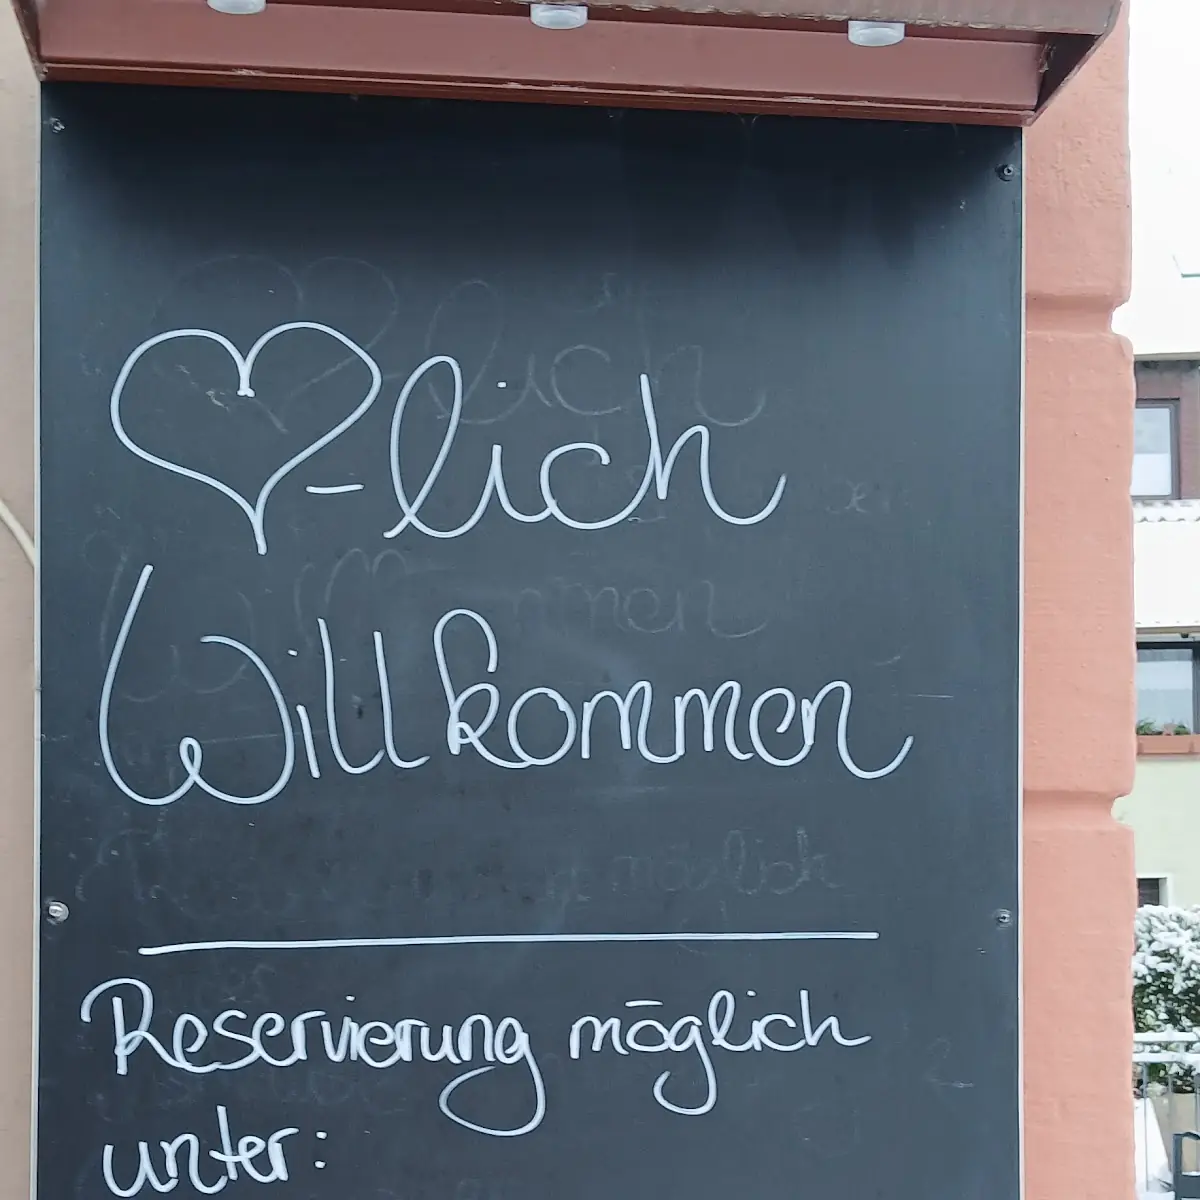 ♡-lich
Willkommen
Reservierung möglich
unter: